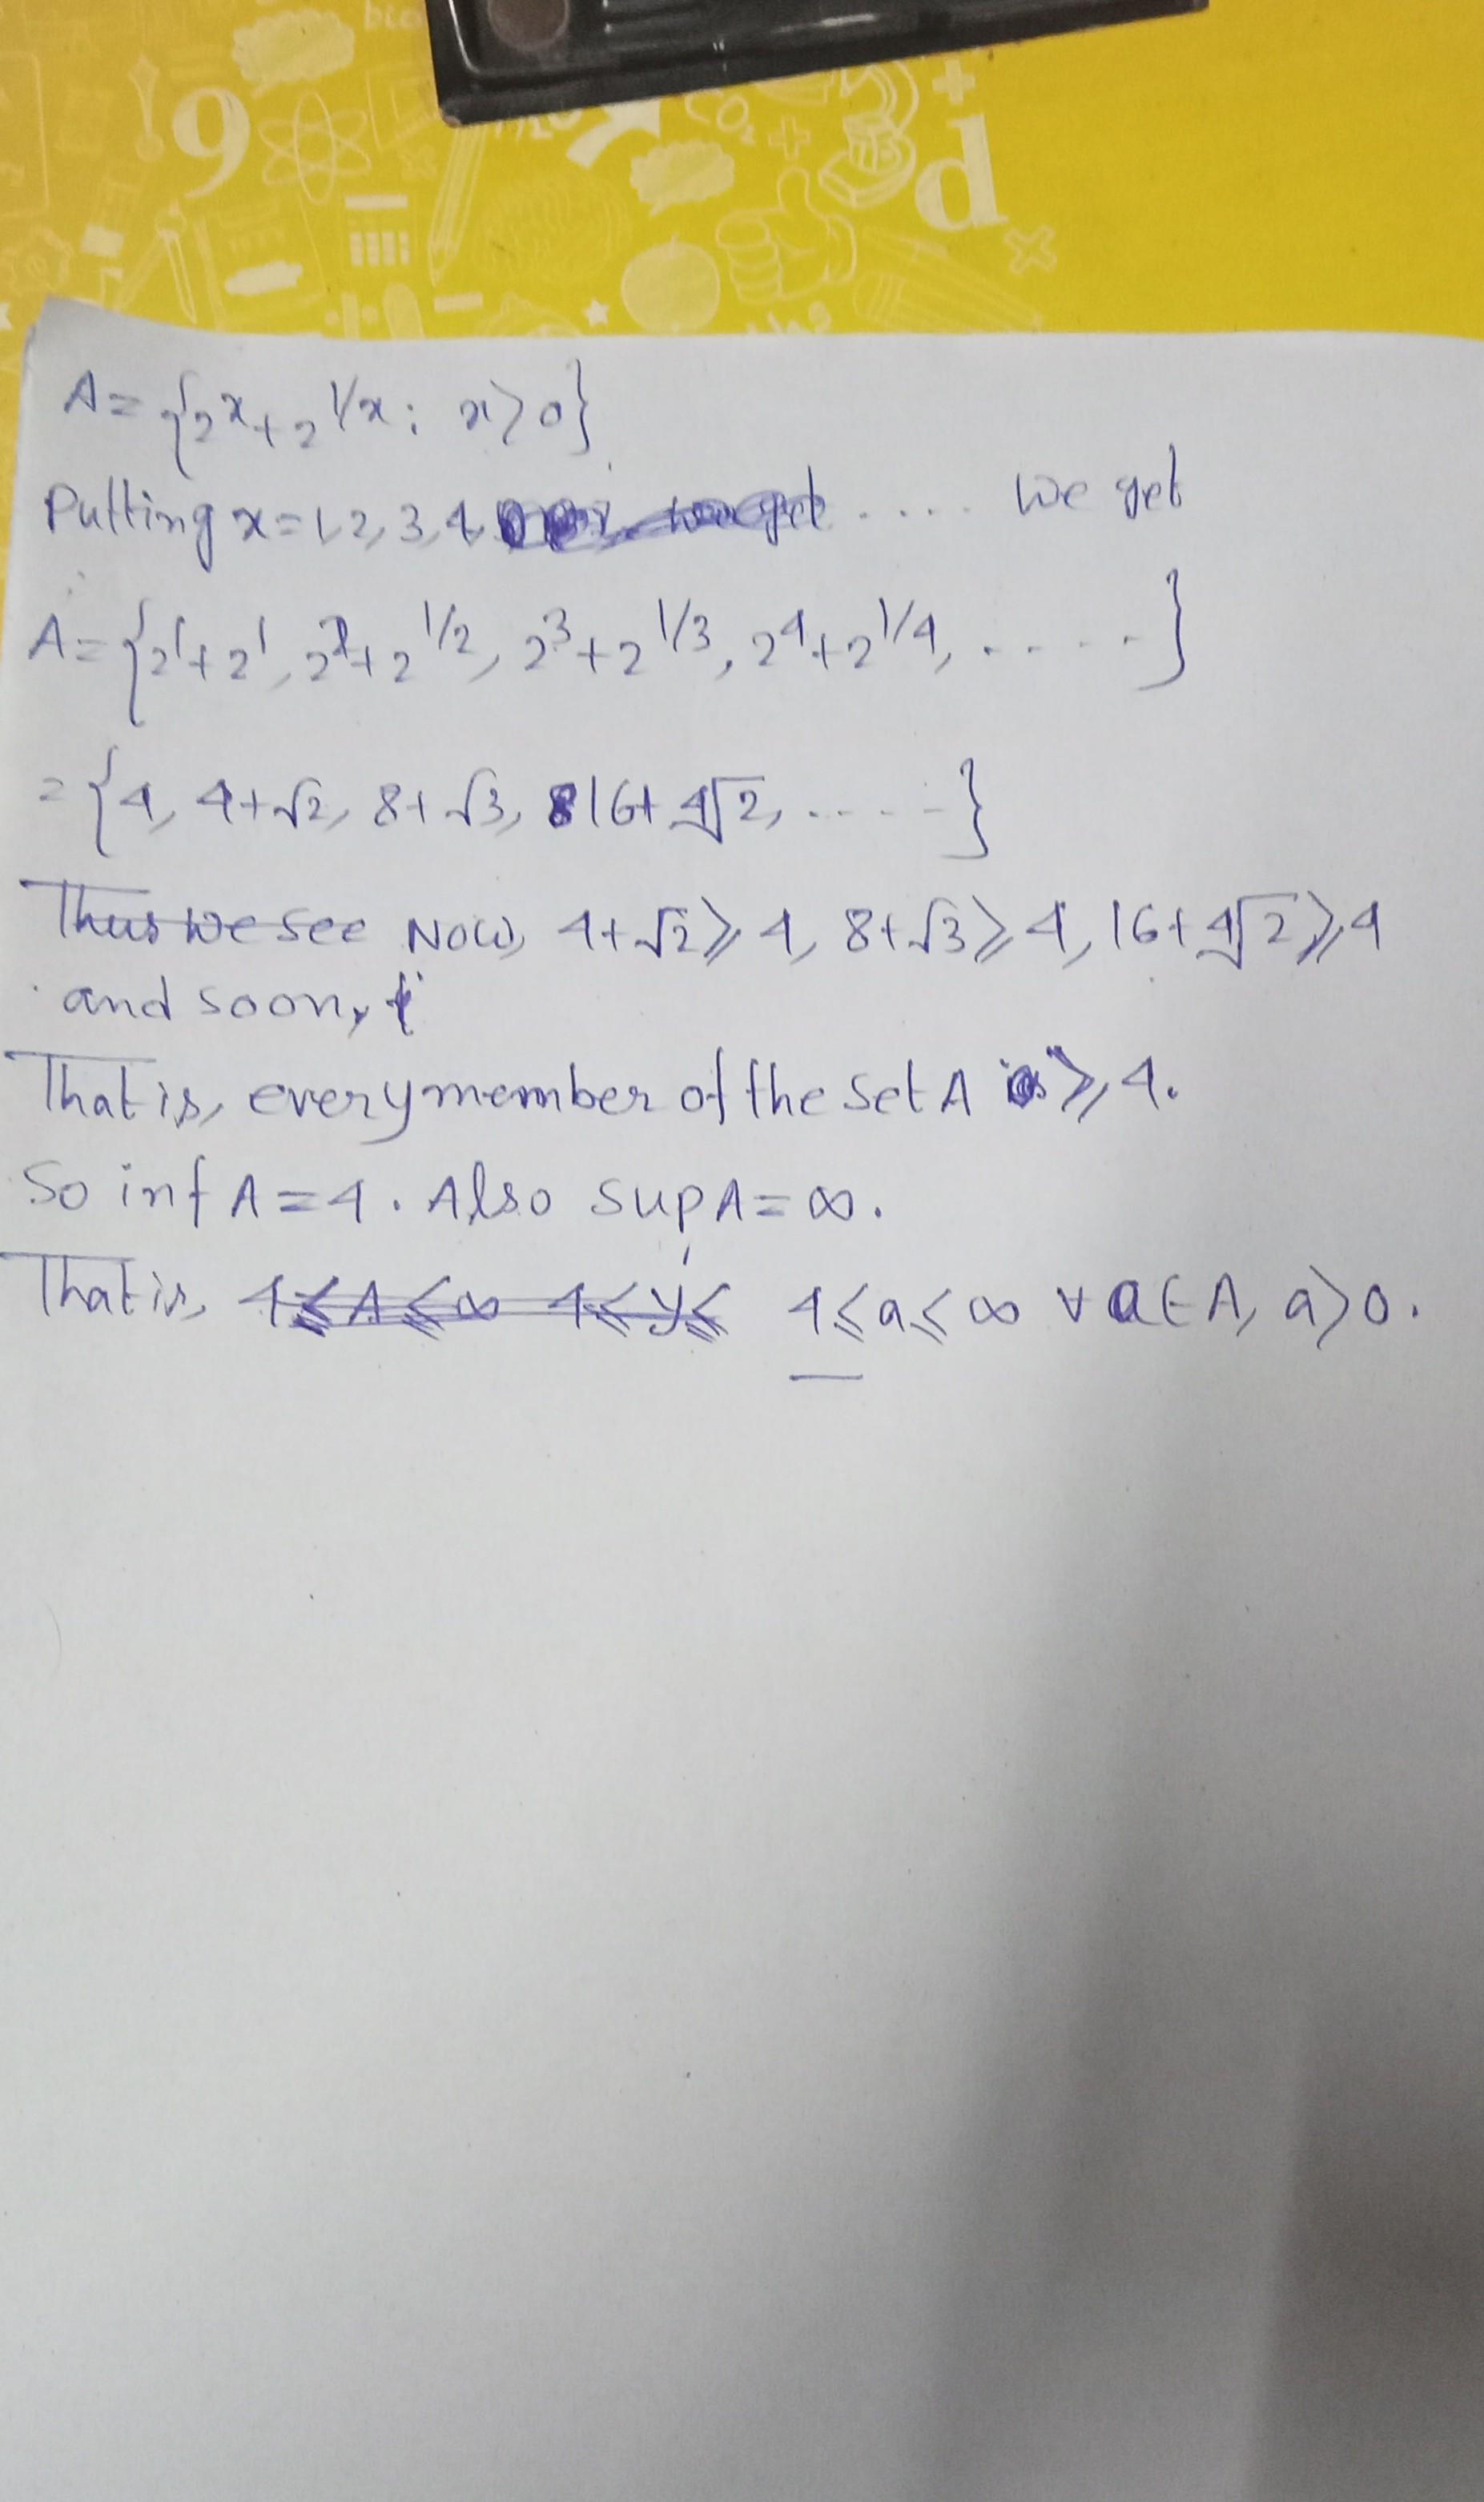 bio
9
H2O
CO2
d
A = {2^x + 2^1/x : x > 0}
Putting x = 1, 2, 3, 4, ..... we get
A = {2^1 + 2^1, 2^2 + 2^1/2, 2^3 + 2^1/3, 2^4 + 2^1/4, .....}
= {4, 4+√2, 8+√3, 16+ 4√2, .....}
Thus we see Now, 4+√2 ≥ 4, 8+√3 ≥ 4, 16+ 4√2 ≥ 4
and soon,
That is, every member of the set A is ≥ 4.
So inf A = 4. Also sup A = ∞.
That is, 4 ≤ A ≤ ∞ 4 ≤ y ≤ 4 ≤ a ≤ ∞ ∀ a ∈ A, a > 0.